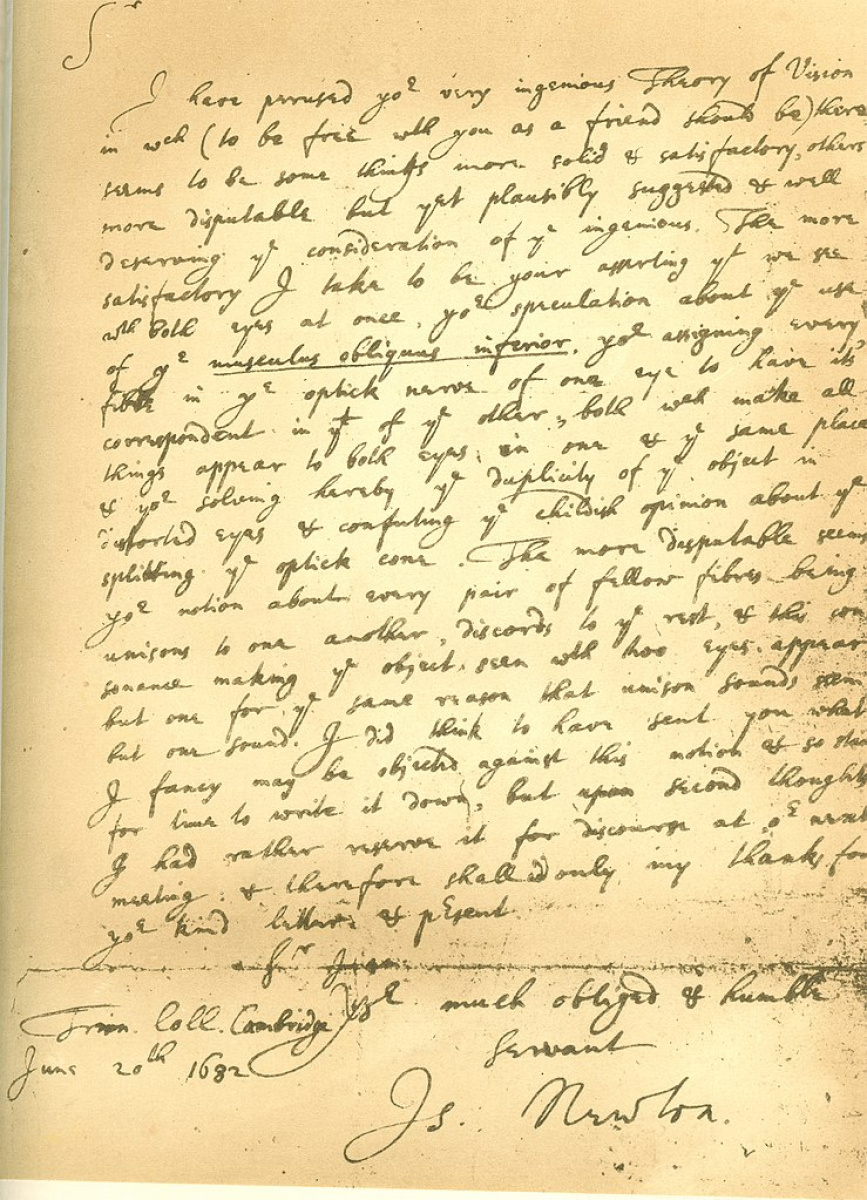 Sr
I have perused yor very ingenious Theory of Vision
in wch (to be free wth you as a friend should be) there
seems to be some things more solid & satisfactory, others
more disputable but yet plausibly suggested & well
deserving ye consideration of ye ingenious. The more
satisfactory I take to be your asserting yt we see
wth both eyes at once, yor speculation about ye use
of ye musculus obliquus inferior, yor assigning every
fibre in ye optick nerve of one eye to have its
correspondent in yt of ye other, both wch make all
things appear to both eyes in one & ye same place
& yor solving hereby ye duplicity of ye object in
distorted eyes & confuting ye childish opinion about ye
splitting ye optick cone. The more disputable seems
yor notion about every pair of fellow fibres being
unisons to one another, discords to ye rest, & this con
sonance making ye object seen wth two eyes appear
but one for ye same reason that unison sounds seem
but one sound. I did think to have sent you what
I fancy may be objected against this notion & so
for time to write it down, but upon second thoughts
I had rather reserve it for discourse at or next
meeting: & therefore shall add only my thanks for
yor kind letter & prsent.
Sr I am
Yor much obliged & humble
Servant
Trin. Coll. Cambridge
June 20th 1682
Is. Newton.